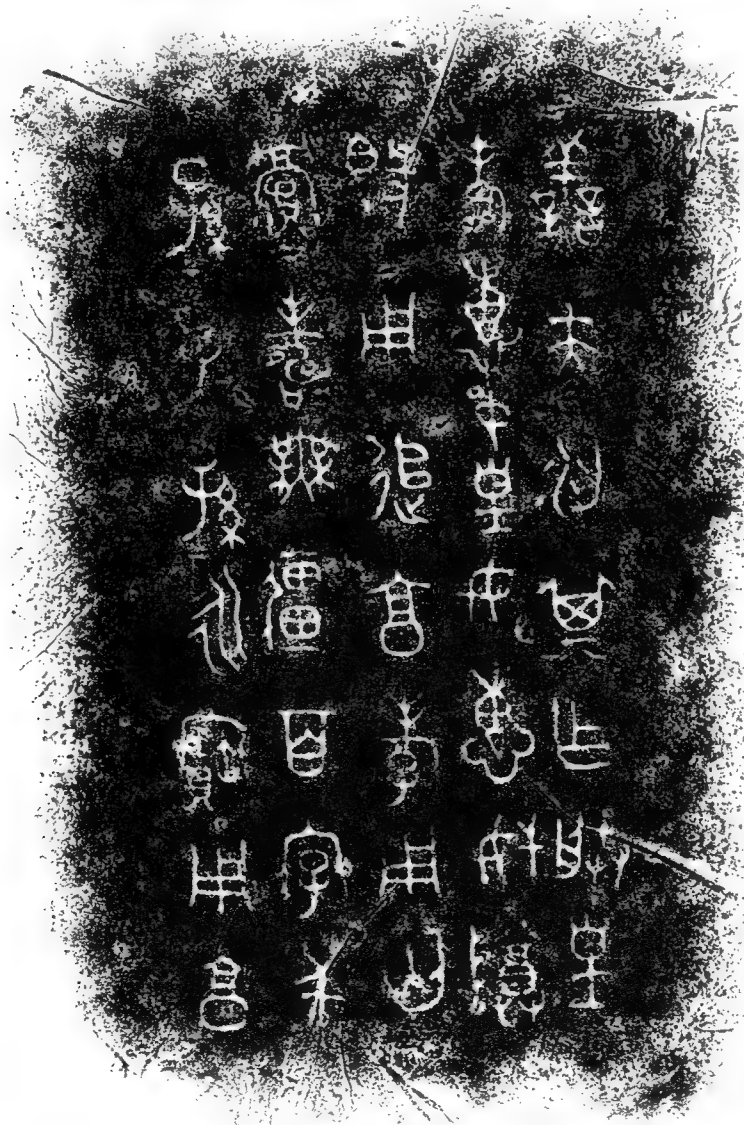 善夫汈其乍朕皇
考惠中皇母惠妣尊
𣪘用追享孝用匄
眉壽無疆百字千
孫子孫永寶用享